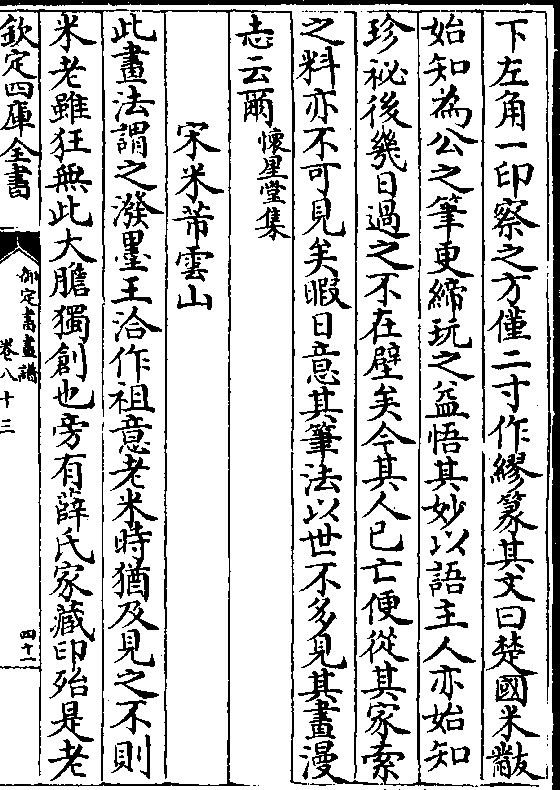 下左角一印察之方僅二寸作繆篆其文曰楚國米黻
始知為公之筆更締玩之益悟其妙以語主人亦始知
珍祕後幾日過之不在壁矣今其人已亡便從其家索
之料亦不可見矣暇日意其筆法以世不多見其畫漫
志云爾懷星堂集
宋米芾雲山
此畫法謂之潑墨王洽作祖意老米時猶及見之不則
米老雖狂無此大膽獨創也旁有薛氏家藏印殆是老
欽定四庫全書
御定書畫譜
卷八十三
四十二